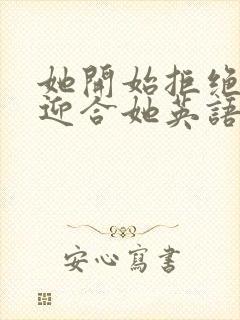 她開始拒絕
迎合她英語
安心寫書